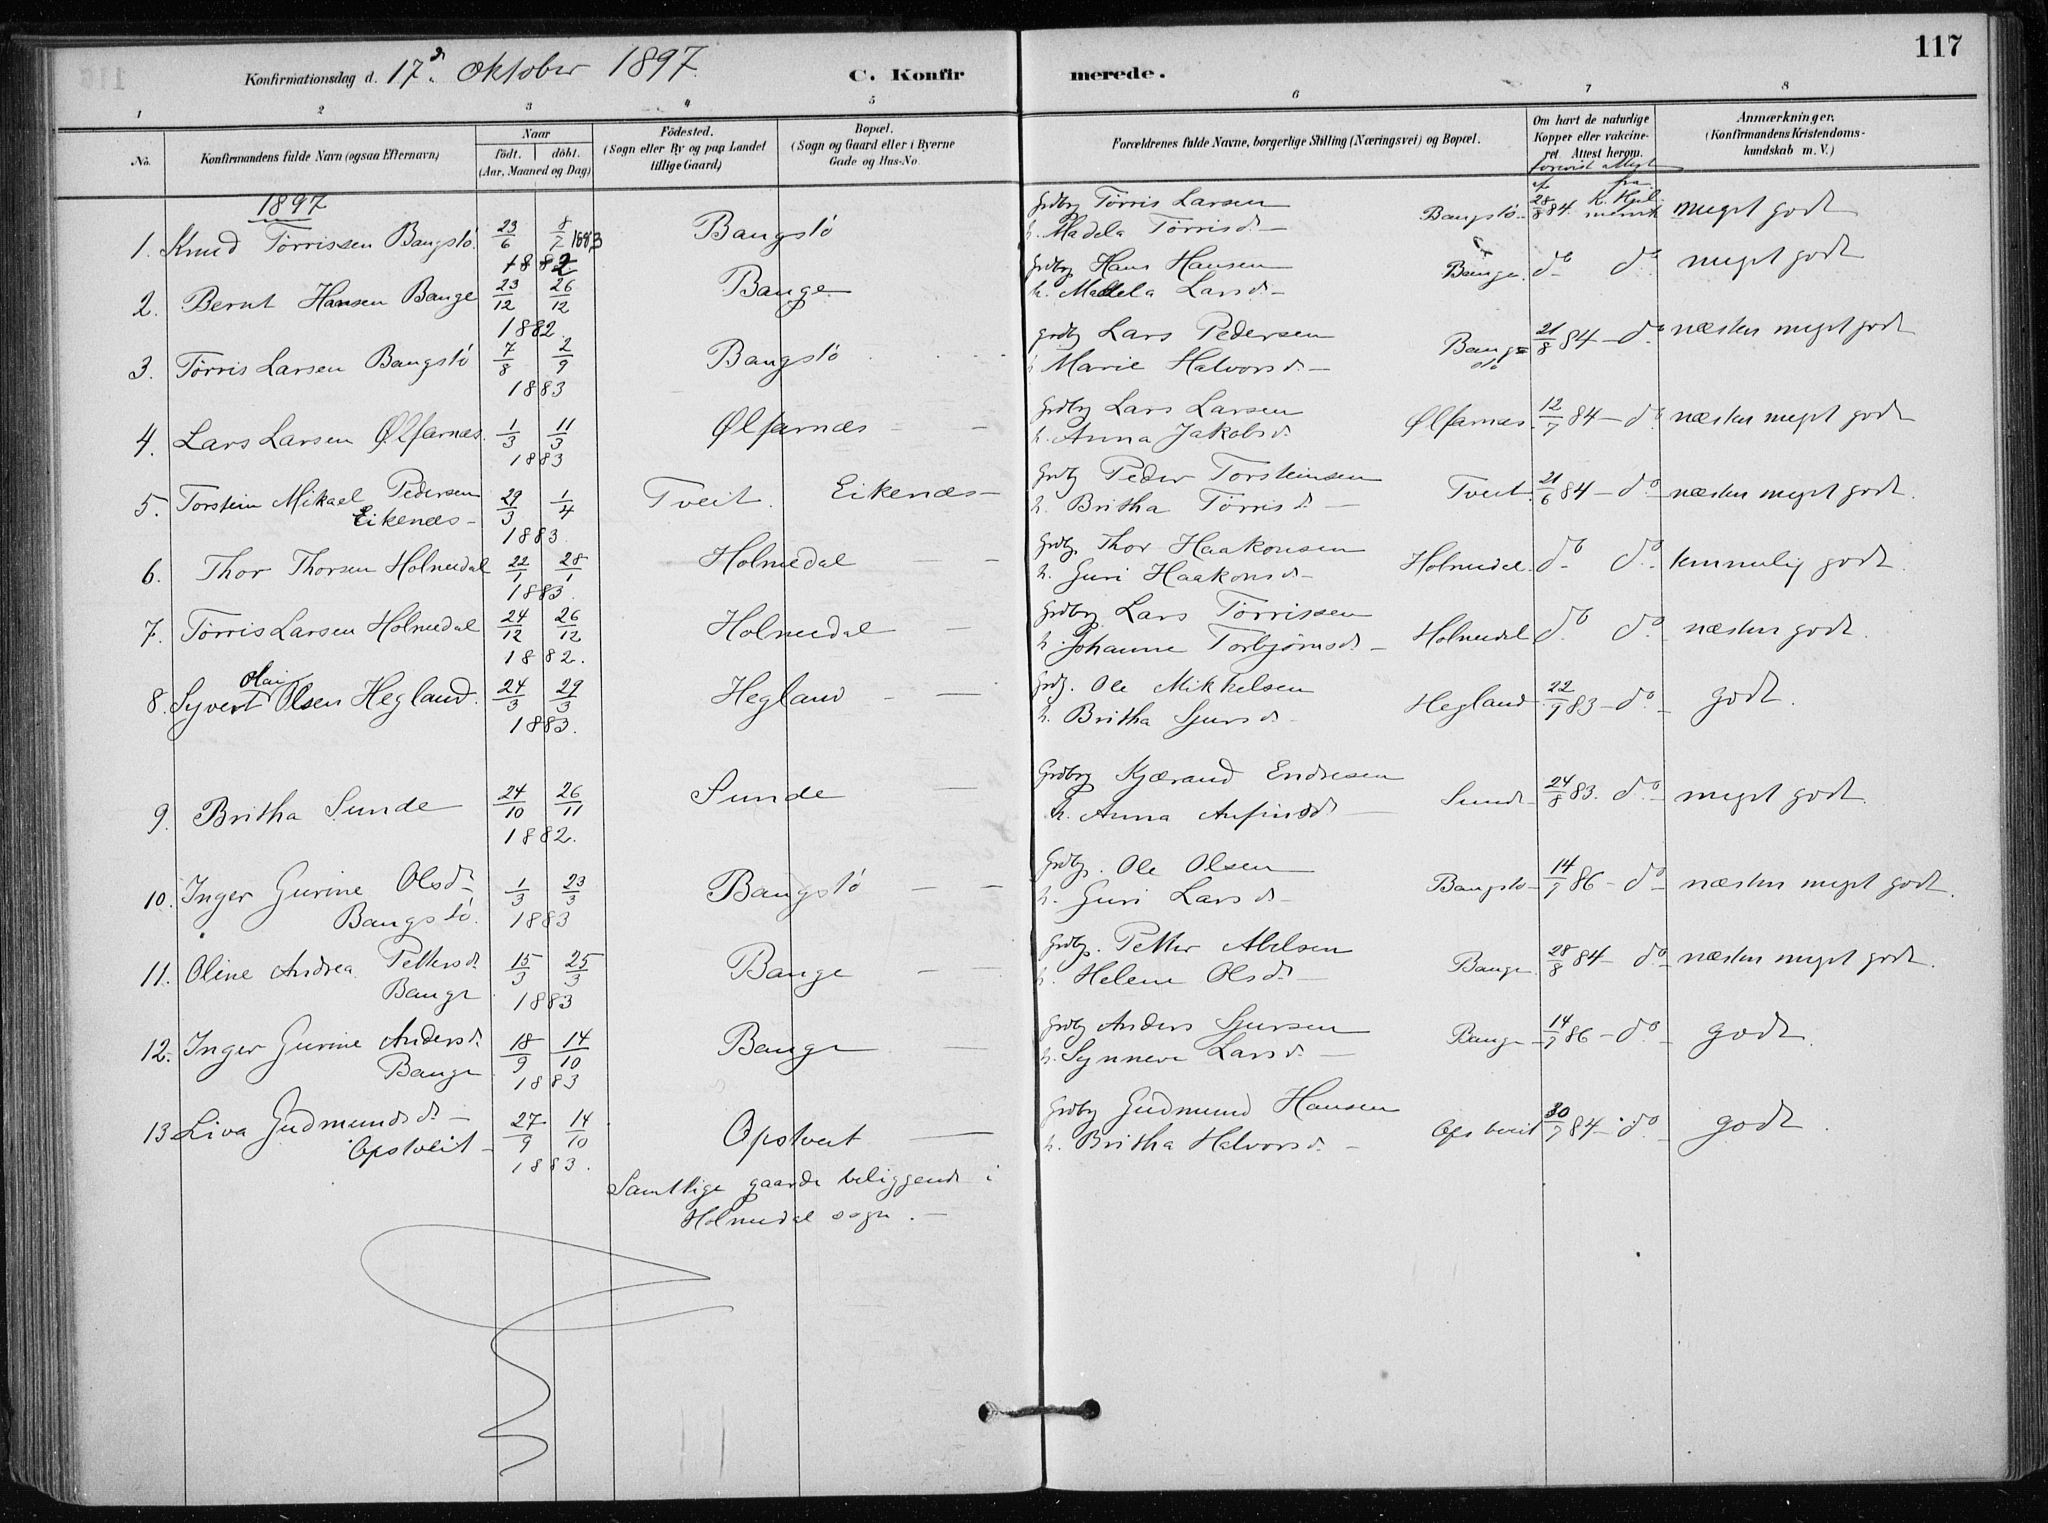 117
Konfirmationsdag d. 17de Oktober 1897. C. Konfirmerede.
1 2 3 4 5 6 7 8
No. Konfirmandens fulde Navn (ogsaa Efternavn) Naar født. døbt. (Aar, Maaned og Dag) Födested. (Sogn eller By og paa Landet tillige Gaard) Bopæl. (Sogn og Gaard eller i Byerne Gade og Hus-No. Forældrenes fulde Navne, borgerlige Stilling (Næringsvei) og Bopæl. Om havt de naturlige Kopper eller vakcineret. Attest herom. Anmærkninger. (Konfirmandens Kristendomskundskab m. V.)
1897
1. Knud Tørrissen Bangstø. 23/6 8/7 1883 Bangstø Grdbr Tørris Larsen h. Madela Tørrisd. – Bangstø – 28/8 84. meget godt
1882
2. Bernt Hansen Bauge 23/12 26/12 Bauge Grdbr Hans Hansen h. Madela Larsd. – Bauge do do meget godt
1882.
3. Tørris Larsen Bangstø 7/8 2/9 Bangstø grdbr Lars Pedersen h. Marie Halvorsd. – Bangstø 21/8 84 – do næsten meget godt
1883
4. Lars Larsen Ølfarnæs. 1/3 11/3 Ølfarnæs – – Grdbr Lars Larsen h. Anna Jakobsd. Ølfarnæs. 12/7 84 – do næsten meget godt
1883
5. Torstein Mikael Pedersen Eikenæs – 29/3 1/4 Tveit. Eikenæs – Grdbr Peder Torsteinsen h. Britha Tørrisd. – Tveit. 21/6 84 – do næsten meget godt.
1883.
6. Thor Thorsen Holmedal 22/1 28/1 Holmedal – – Grdbr. Thor Haakonsen h. Guri Haakonsd. – Holmedal. do do temmelig godt.
1883.
7. Tørris Larsen Holmedal 24/12 26/12 Holmedal – Grdbr Lars Tørrissen h. Johanne Torbjørnsd. – Holmedal do do næsten godt.
1882.
8. Syvert Olai Olsen Hegland. 24/3 29/3 Hegland – – Grdbr. Ole Mikkelsen h. Britha Sjursd. – Hegland 22/9 83 – do – godt.
1883.
9. Britha Sunde 24/10 26/11 Sunde – Grdbr Kjærand Endresen h. Anna Anfinsd. – Sunde – 24/8 83. do – meget godt.
1882.
10. Inger Gurine Olsd. Bangstø. 1/3 23/3 Bangstø – – Grdbr. Ole Olsen h. Guri Larsd. – Bangstø – 14/9 86 – do – næsten meget godt.
1883
11. Oline Andrea Pettersd. Bauge 15/3 25/3 Bauge – – Grdbr. Petter Abelsen h. Helene Olsd. – Bauge 28/8 84 – do – næsten meget godt.
1883
12. Inger Gurine Andersd. Bauge 18/9 14/10 Bauge – Grdbr Anders Sjursen h. Synneve Larsd. – Bauge – 14/9 86 – do – godt.
1883
13 Liva Gudmundsd. – Opstveit – 27/9 14/10 Opstveit – Grdbr Gudmund Hansen h. Britha Halvorsd. – Opstveit 30/9 84 – do – godt.
1883.
Samtlige gaarde beliggende i
Holmedal sogn. –